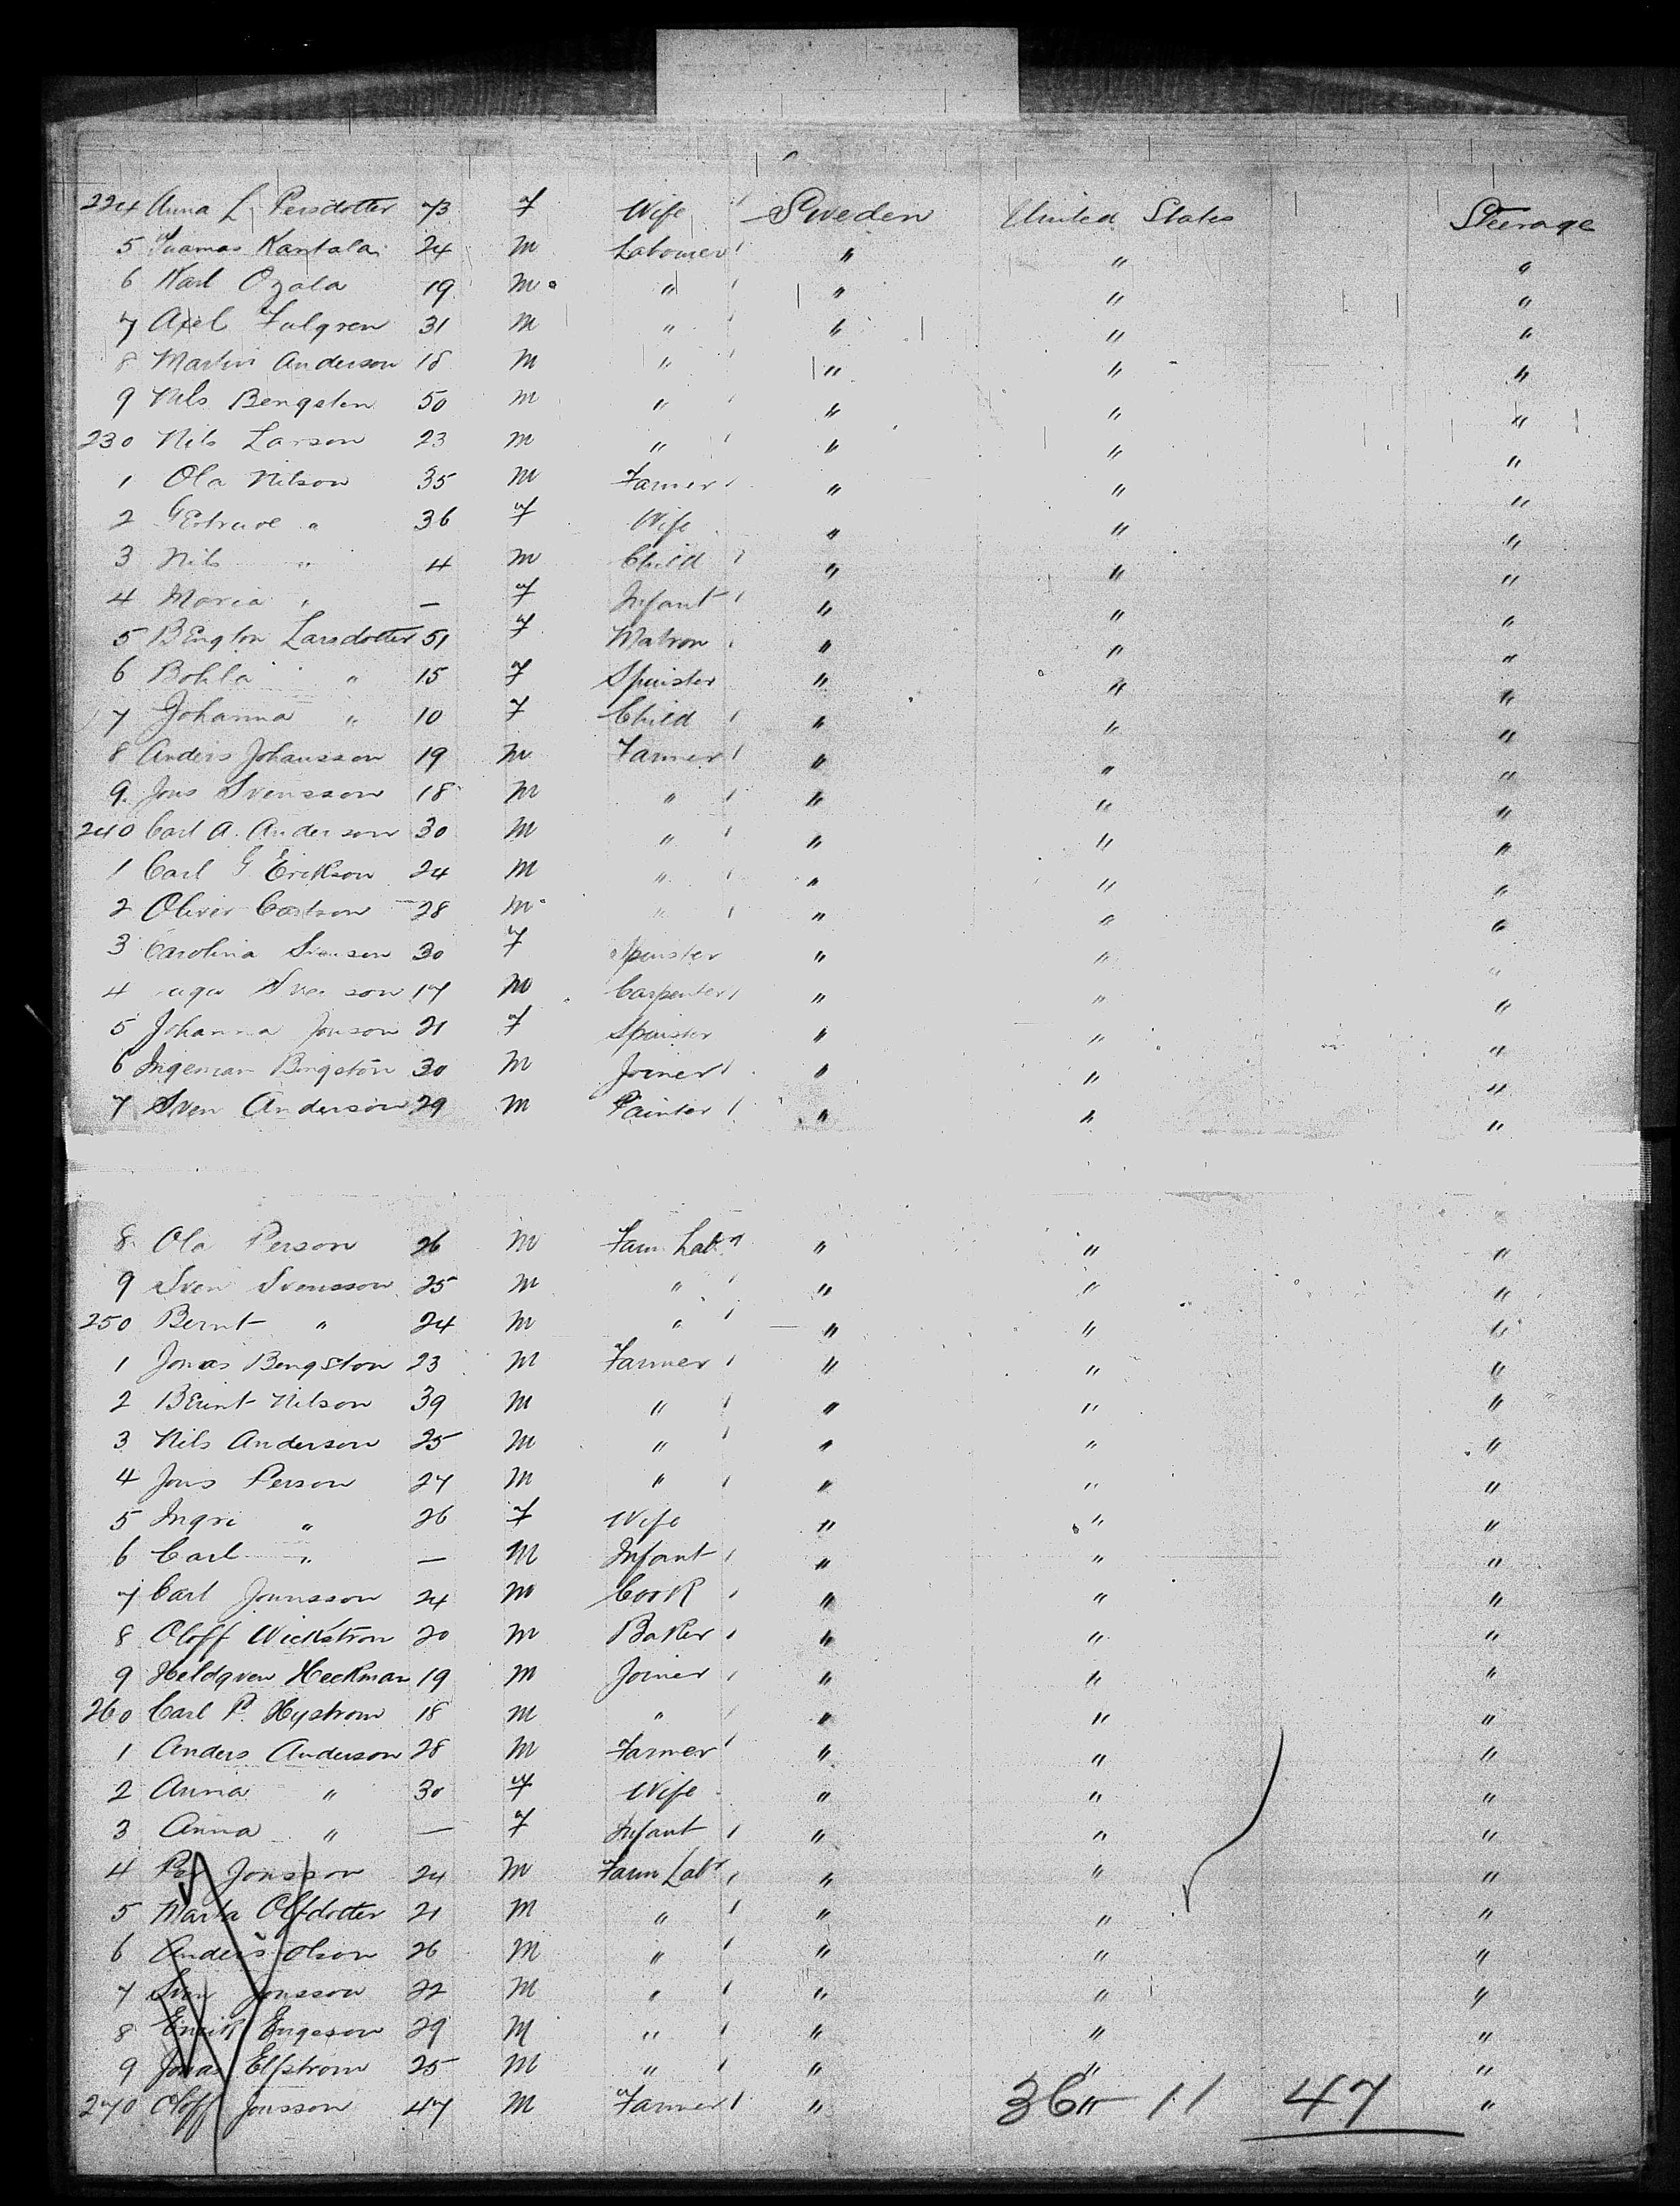 224 Anna L Persdotter 73 F Wife Sweden United States Steerage
5 Kantala 24 M Labourer " " "
6 Karl Ozala 19 M " " " "
7 Axel Fulgren 31 M " " " "
8 Martin Anderson 18 M " " " "
9 Nils Bengston 50 M " " " "
230 Nils Larson 23 M " " " "
1 Ola Nilson 35 M Farmer " " "
2 " 36 F Wife " " "
3 Nils " 4 M Child " " "
4 Maria " — F Infant " " "
5 Bengton Larsdotter 51 F Matron " " "
6 Bohla " 15 F Spinster " " "
7 Johanna " 10 F Child " " "
8 Anders Johansson 19 M Farmer " " "
9 Jons Svensson 18 M " " " "
240 Carl A. Anderson 30 M " " " "
1 Carl G Erikson 24 M " " " "
2 Oliver Carlson 28 M " " " "
3 Carolina 30 F Spinster " " "
4 17 M Carpenter " " "
5 Johanna Jonson 21 F Spinster " " "
6 Ingeman Bengston 30 M Joiner " " "
7 Sven Anderson 29 M Painter " " "
8 Ola Person 26 M Farm Labr " " "
9 Sven Svensson 25 M " " " "
250 Bernt " 24 M " " " "
1 Jonas Bengston 23 M Farmer " " "
2 Berint Nilson 39 M " " " "
3 Nils Anderson 25 M " " " "
4 Jons Person 27 M " " " "
5 Ingri " 26 F Wife " " "
6 Carl " — M Infant " " "
7 Carl Jounsson 24 M Cook " " "
8 Oloff Wickstrom 20 M Baker " " "
9 Heldgren Heckman 19 M Joiner " " "
260 Carl P. Hystrom 18 M " " " "
1 Anders Anderson 28 M Farmer " " "
2 Anna " 30 F Wife " " "
3 Anna " — F Infant " " "
4 Per Jonsson 24 M Farm Labr " " "
5 Marta Olfdotter 21 M " " " "
6 Anders Olson 26 M " " " "
7 Sven Jonsson 22 M " " " "
8 Engeson 29 M " " " "
9 Jonas Elfstrom 25 M " " " "
270 Oloff Jonsson 47 M Farmer " " "
36 — 11 47